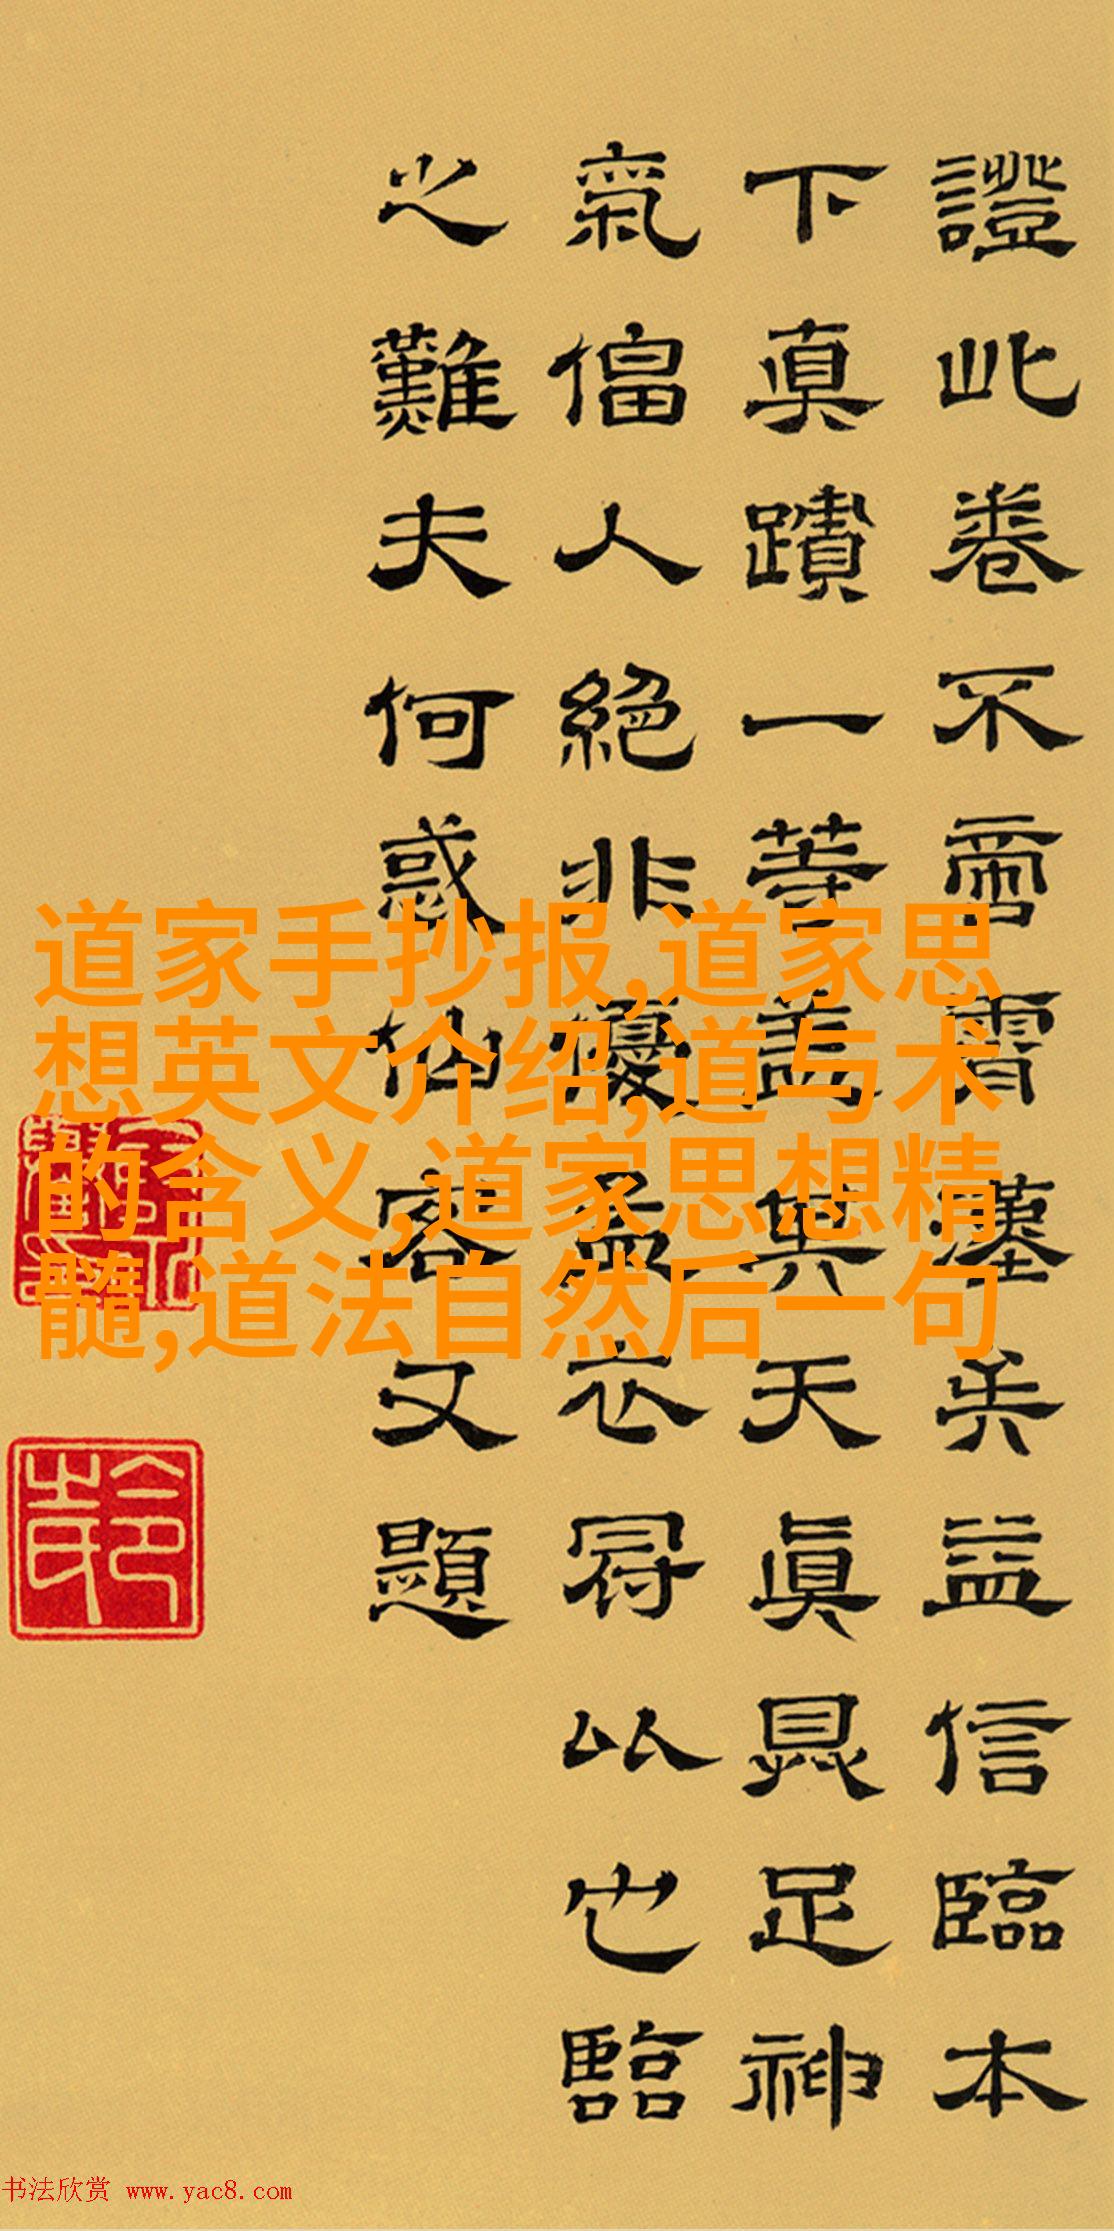 證此卷不啻霄壤矣益信臨本
下真蹟一等蓋其天真具足神
氣偪人絕非優孟衣冠以也臨
之難夫何惑仙客又題
道家手抄报,道家思
想英文介绍,道与术
的含义,道家思想精
髓,道法自然后一句
书法欣赏 www.yac8.com